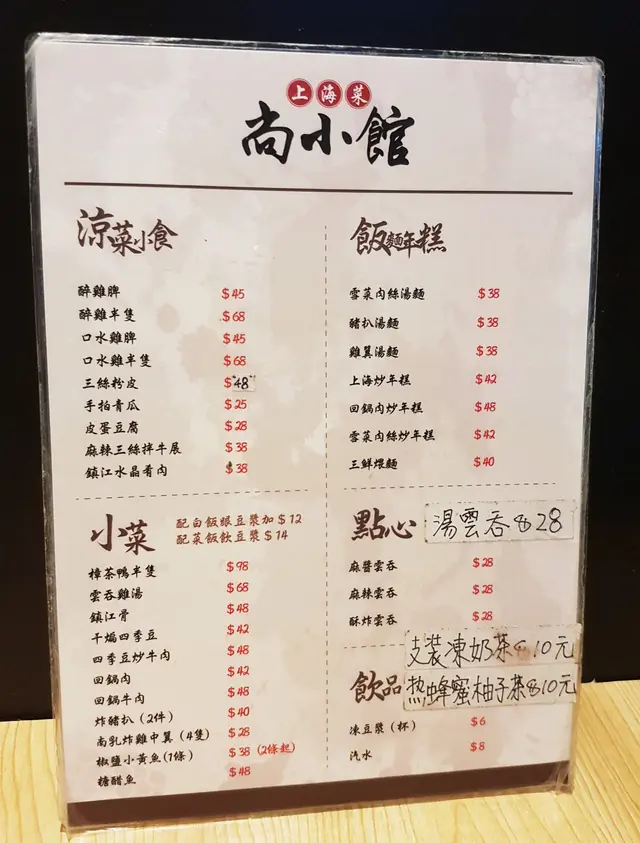 上海菜
尚小館
涼菜小食
醉雞脾 $45
醉雞半隻 $68
口水雞脾 $45
口水雞半隻 $68
三絲粉皮 $48
手拍青瓜 $25
皮蛋豆腐 $28
麻辣三絲拌牛展 $38
鎮江水晶肴肉 $38
小菜
配白飯跟豆漿加 $12
配菜飯飲豆漿 $14
樟茶鴨半隻 $98
雲吞雞湯 $68
鎮江骨 $48
干煸四季豆 $42
四季豆炒牛肉 $48
回鍋肉 $42
回鍋牛肉 $48
炸豬扒（2件） $40
南乳炸雞中翼（4隻） $28
椒鹽小黃魚（1條） $38 (2條起)
糖醋魚 $48
飯麵年糕
雪菜肉絲湯麵 $38
豬扒湯麵 $38
雞翼湯麵 $38
上海炒年糕 $42
回鍋肉炒年糕 $48
雪菜肉絲炒年糕 $42
三鮮煨麵 $40
點心
湯雲吞$28
麻醬雲吞 $28
麻辣雲吞 $28
酥炸雲吞 $28
支裝凍奶茶$10元
飲品
热蜂蜜柚子茶$10元
凍豆漿（杯） $6
汽水 $8